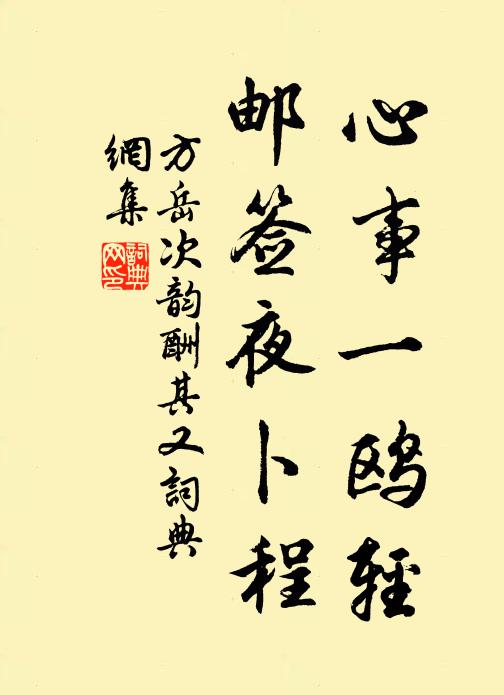 心事一鸥輕
邮签夜卜程
方岳次韵酬其又詞典
網集
詞典
网印